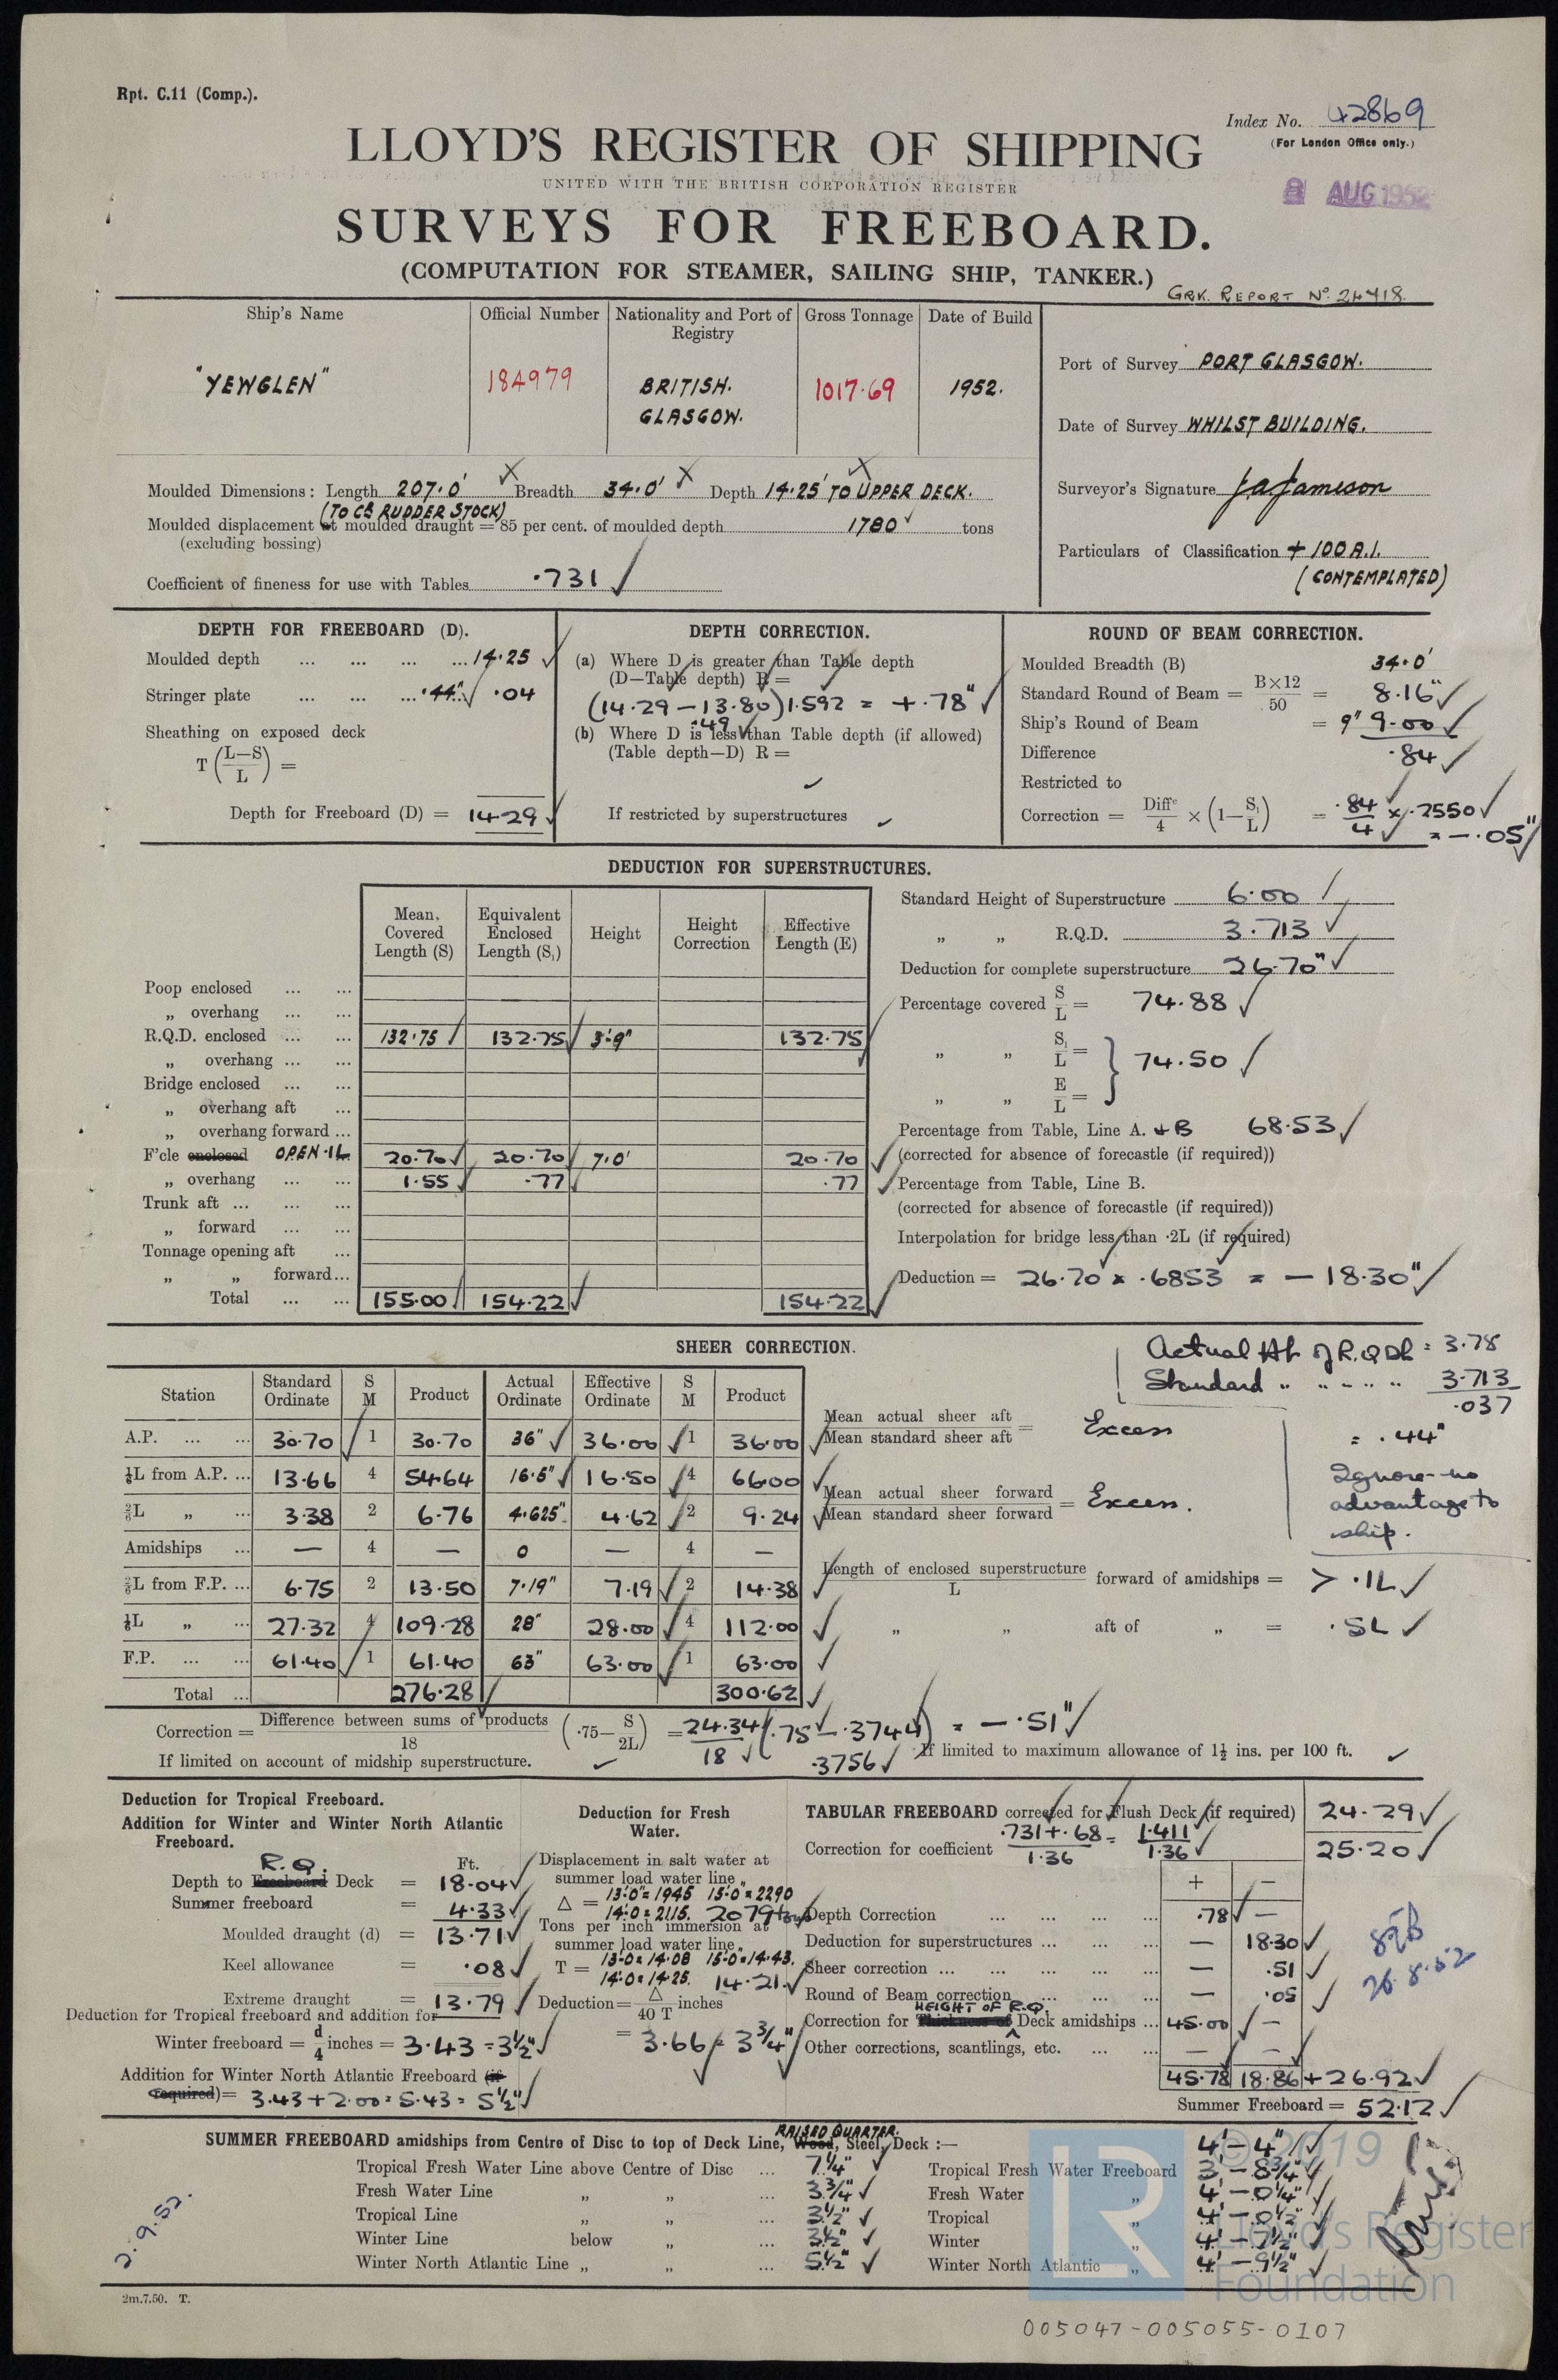 Rpt. C.11 (Comp.).
Index No. 42869
(For London Office only.)
LLOYD'S REGISTER OF SHIPPING
UNITED WITH THE BRITISH CORPORATION REGISTER
AUG 1952
SURVEYS FOR FREEBOARD.
(COMPUTATION FOR STEAMER, SAILING SHIP, TANKER.)
GRK. REPORT No. 24418.
Ship's Name Official Number Nationality and Port of Registry Gross Tonnage Date of Build
"YEWGLEN" 184979 BRITISH. GLASGOW. 1017.69 1952.
Port of Survey PORT GLASGOW.
Date of Survey WHILST BUILDING.
Surveyor's Signature JaJameson
Particulars of Classification + 100 A.1.
(CONTEMPLATED)
Moulded Dimensions: Length 207.0' Breadth 34.0' Depth 14.25' TO UPPER DECK.
(TO CS RUDDER STOCK)
Moulded displacement at moulded draught = 85 per cent. of moulded depth 1780 tons
(excluding bossing)
Coefficient of fineness for use with Tables .731
DEPTH FOR FREEBOARD (D).
Moulded depth ... ... ... ... 14.25
Stringer plate ... ... ... .44" .04
Sheathing on exposed deck
T (L—S/L) =
Depth for Freeboard (D) = 14.29
DEPTH CORRECTION.
(a) Where D is greater than Table depth
(D—Table depth) R =
(14.29 – 13.80) 1.592 = + .78"
.49
(b) Where D is less than Table depth (if allowed)
(Table depth—D) R =
If restricted by superstructures
ROUND OF BEAM CORRECTION.
Moulded Breadth (B) 34.0'
Standard Round of Beam = B×12/50 = 8.16"
Ship's Round of Beam = 9" 9.00
Difference .84
Restricted to
Correction = Diffe/4 × (1—S₁/L) = .84/4 × .2550
= – .05"
DEDUCTION FOR SUPERSTRUCTURES.
Mean Covered Length (S) Equivalent Enclosed Length (S₁) Height Height Correction Effective Length (E)
Poop enclosed ... ...
„ overhang ... ...
R.Q.D. enclosed ... ... 132.75 132.75 3'-9" 132.75
„ overhang ... ...
Bridge enclosed ... ...
„ overhang aft ...
„ overhang forward ...
F'cle enclosed OPEN .1L 20.70 20.70 7.0' 20.70
„ overhang ... ... 1.55 .77 .77
Trunk aft ... ... ...
„ forward ... ...
Tonnage opening aft ...
„ „ forward...
Total ... ... 155.00 154.22 154.22
Standard Height of Superstructure 6.00
„ „ R.Q.D. 3.713
Deduction for complete superstructure 26.70"
Percentage covered S/L = 74.88
„ „ S₁/L = } 74.50
„ „ E/L =
Percentage from Table, Line A. & B 68.53
(corrected for absence of forecastle (if required))
Percentage from Table, Line B.
(corrected for absence of forecastle (if required))
Interpolation for bridge less than ·2L (if required)
Deduction = 26.70 x .6853 = – 18.30"
SHEER CORRECTION.
Station Standard Ordinate S M Product Actual Ordinate Effective Ordinate S M Product
A.P. ... ... 30.70 1 30.70 36" 36.00 1 36.00
⅙L from A.P. ... 13.66 4 54.64 16.5" 16.50 4 66.00
2/6L „ ... 3.38 2 6.76 4.625" 4.62 2 9.24
Amidships ... — 4 — 0 — 4 —
2/6L from F.P. ... 6.75 2 13.50 7.19" 7.19 2 14.38
⅙L „ ... 27.32 4 109.28 28" 28.00 4 112.00
F.P. ... ... 61.40 1 61.40 63" 63.00 1 63.00
Total ... 276.28 300.62
Actual Ht of R.Q Dk = 3.75
Standard „ „ „ „ „ 3.713
.037
= .44"
Ignore - no advantage to ship.
Mean actual sheer aft / Mean standard sheer aft = Excess
Mean actual sheer forward / Mean standard sheer forward = Excess.
Length of enclosed superstructure / L forward of amidships = > .1L
„ „ aft of „ = .5L
Correction = Difference between sums of products / 18 (·75—S/2L) = 24.34/18 (.75 – .3744) = – .51"
.3756
If limited on account of midship superstructure.
If limited to maximum allowance of 1½ ins. per 100 ft.
Deduction for Tropical Freeboard.
Addition for Winter and Winter North Atlantic Freeboard.
Ft.
R.Q.
Depth to Freeboard Deck = 18.04
Summer freeboard = 4.33
Moulded draught (d) = 13.71
Keel allowance = .08
Extreme draught = 13.79
Deduction for Tropical freeboard and addition for
Winter freeboard = d/4 inches = 3.43 = 3½"
Addition for Winter North Atlantic Freeboard (if required) = 3.43 + 2.00 = 5.43 = 5½"
Deduction for Fresh Water.
Displacement in salt water at summer load water line
Δ = 13'-0" = 1945 15'-0 = 2290
14'-0 = 2115. 2079 tons
Tons per inch immersion at summer load water line
T = 13'-0 = 14.08 15'-0 = 14.43.
14'-0 = 14.25. 14.21
Deduction = Δ/40 T inches
= 3.66 = 3¾"
TABULAR FREEBOARD corrected for Flush Deck (if required) 24.29
Correction for coefficient .731 + .68/1.36 = 1.411/1.36 25.20
+ —
Depth Correction ... ... ... ... .78 —
Deduction for superstructures ... ... ... — 18.30
Sheer correction ... ... ... ... — .51
Round of Beam correction ... ... ... — .05
HEIGHT OF R.Q.
Correction for Thickness of Deck amidships ... 45.00 —
Other corrections, scantlings, etc. ... ... — —
45.78 18.86 + 26.92
Summer Freeboard = 52.12
26.8.52
RAISED QUARTER.
SUMMER FREEBOARD amidships from Centre of Disc to top of Deck Line, Wood, Steel, Deck :— 4' – 4"
Tropical Fresh Water Line above Centre of Disc ... 7¼" Tropical Fresh Water Freeboard 3' – 8¾"
Fresh Water Line „ „ ... 3¾" Fresh Water „ 4' – 0¼"
Tropical Line „ „ ... 3½" Tropical „ 4' – 0½"
Winter Line below „ ... 3½" Winter „ 4' – 7½"
Winter North Atlantic Line „ „ ... 5½" Winter North Atlantic „ 4' – 9½"
2.9.52.
© 2019
LR
Lloyd's Register
Foundation
2m.7.50. T.
005047-005055-0107